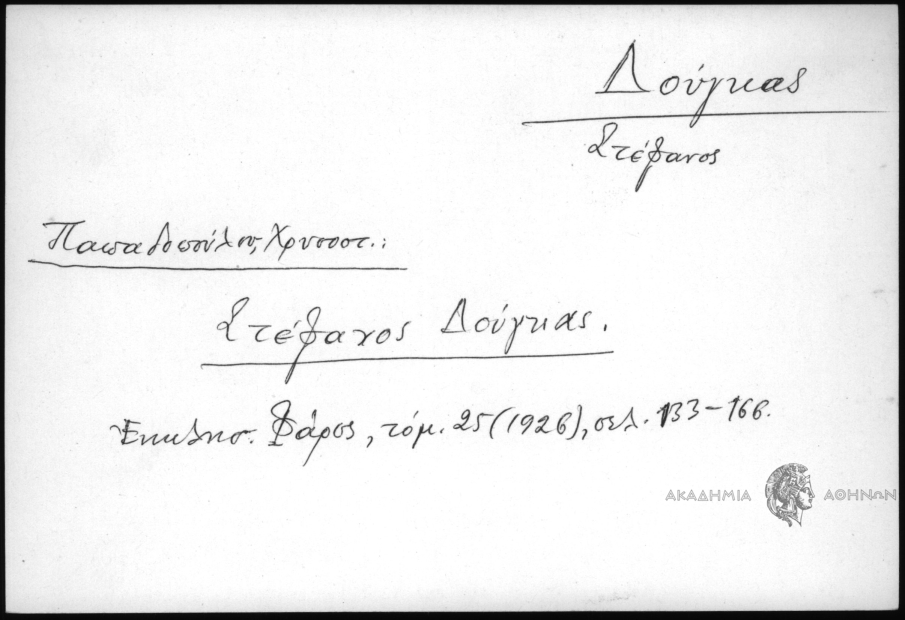 Δούγκας
Στέφανος
Παπαδοπούλου, Χρυσοστ.:
Στέφανος Δούγκας.
Ἐκκλησ. Φάρος, τόμ. 25 (1926), σελ. 133-166.
ΑΚΑΔΗΜΙΑ ΑΘΗΝΩΝ